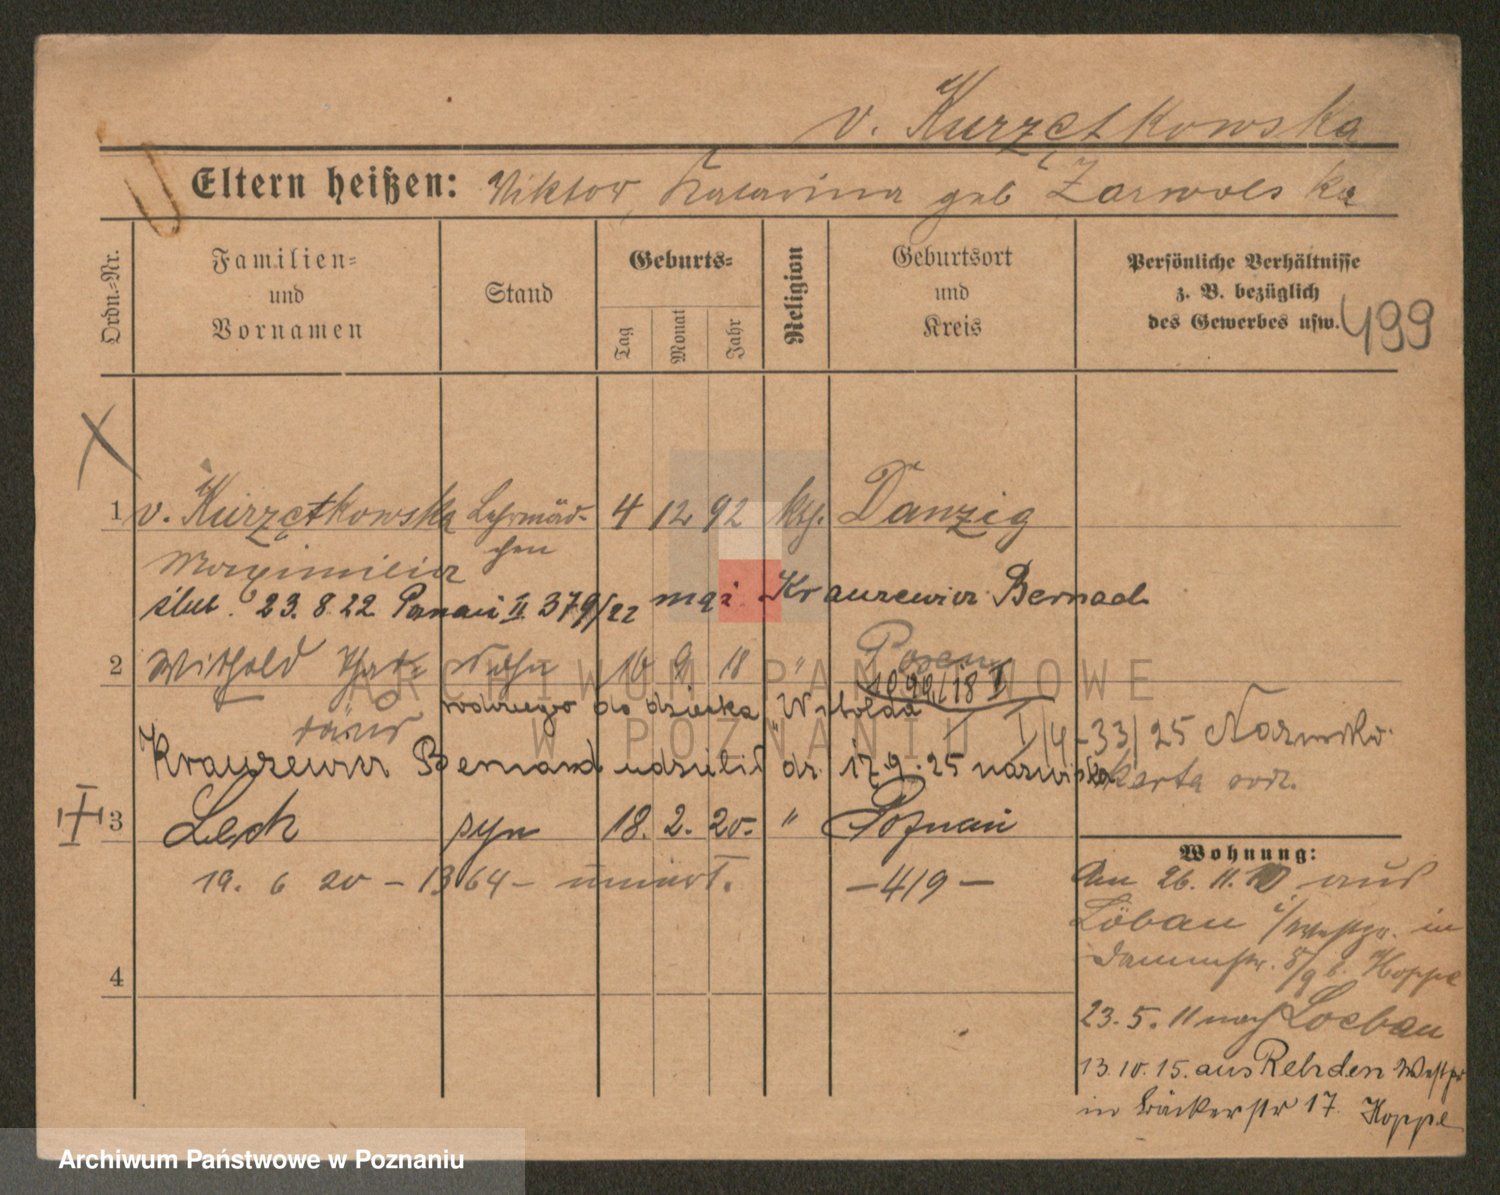 v. Kurzętkowska
Eltern heißen: Viktor, Katarina geb Żarwolska
Ordn.-Nr.
Familien-
und
Vornamen
Stand
Geburts-
Tag
Monat
Jahr
Religion
Geburtsort
und
Kreis
Persönliche Verhältnisse
z. B. bezüglich
des Gewerbes usw.
499
1 v. Kurzętkowska Lehrmäd- 4 12 92 kth. Danzig
chen
ślub. 23.8.22 Poznań II 379/22 mąż Bernard
2 Withold Sohn 16 9 18 " Posen
1099/18 I
rodowego do dziecka Witolda
I/4-33/25
Bernard udzielił dn. 17.9.25 nazwiska
karta
3 Lech syn 18. 2. 20. " Poznań
19. 6 20 - 1364 -
-419-
4
Wohnung:
Am 26. 11. 10 aus
Löbau i/Westpr. in
Dammstr. 8/9 b. Hoppe
23. 5. 11 nach Loebau
13. 10. 15. aus Rehden Westpr
in Bäckerstr 17 Hoppe
ARCHIWUM PAŃSTWOWE
W POZNANIU
Archiwum Państwowe w Poznaniu